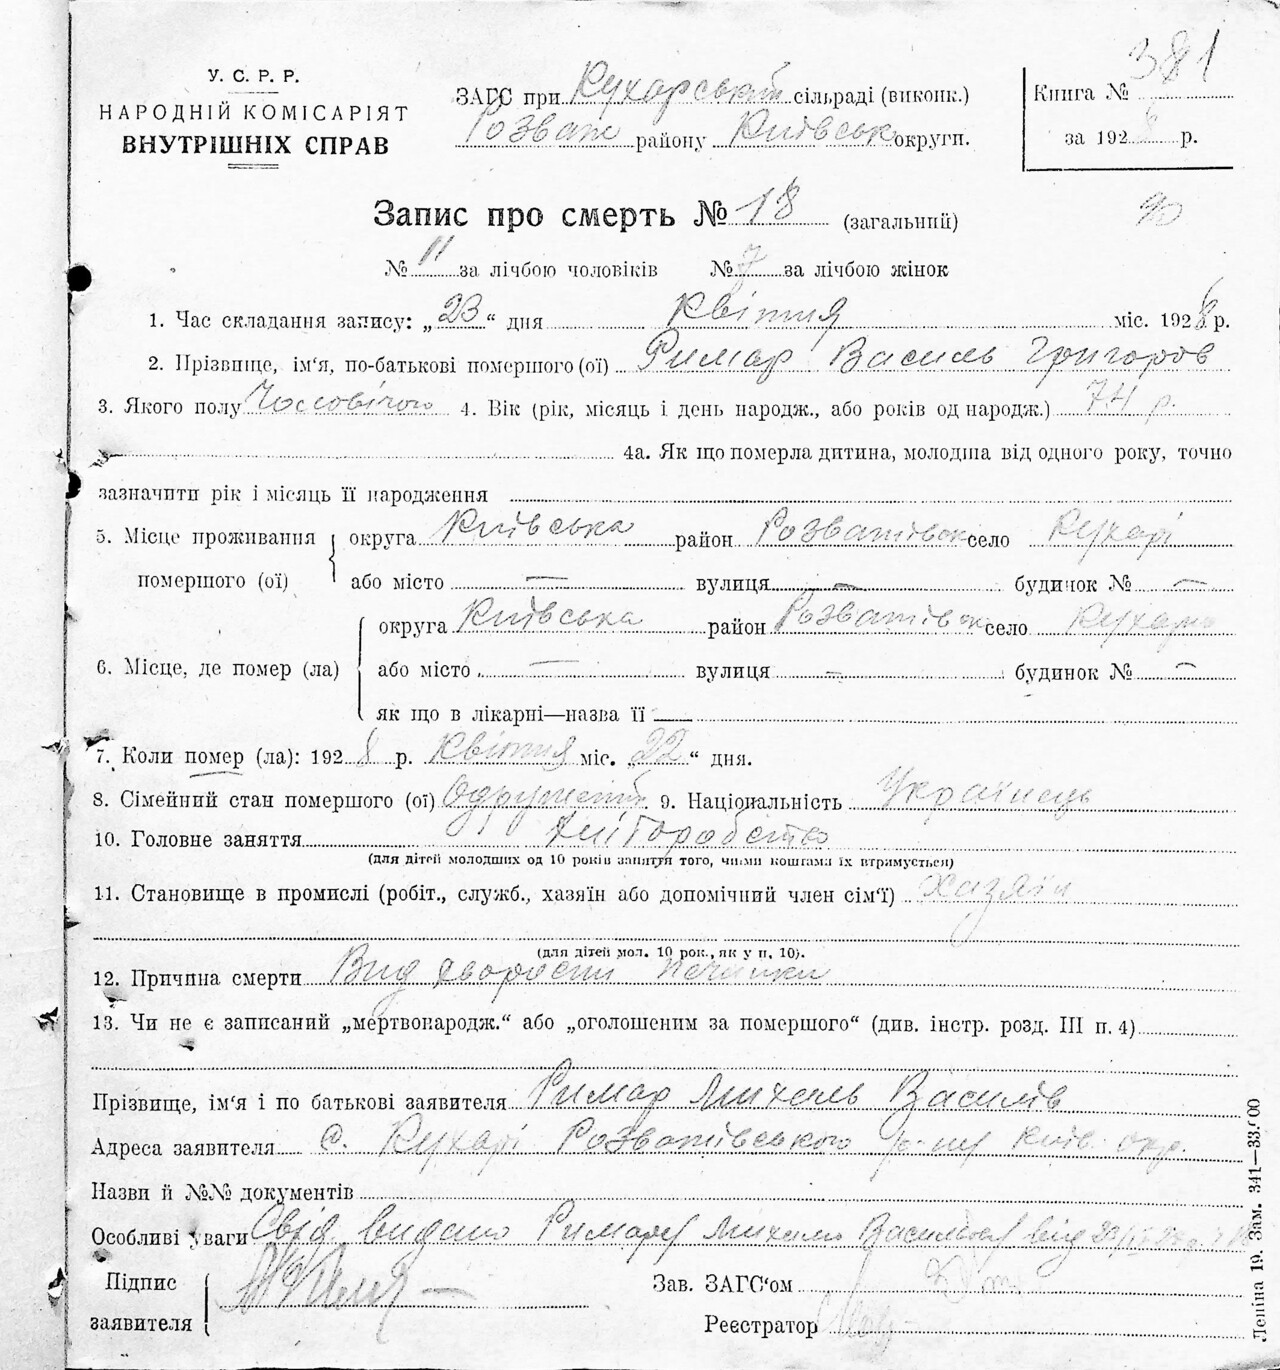 У. С. Р. Р.
НАРОДНІЙ КОМІСАРІЯТ
ВНУТРІШНІХ СПРАВ
ЗАГС при Кухарській сільраді (виконк.)
Розваж району Київськ округи.
Книга № 381
за 1928 р.
Запис про смерть № 18 (загальний)
№ 11 за лічбою чоловіків № 7 за лічбою жінок
1. Час складання запису: „23“ дня Квітня міс. 1928 р.
2. Прізвище, ім‘я, по-батькові помершого (ої) Римар Василь Григоров
3. Якого полу Чоловічого 4. Вік (рік, місяць і день народж., або років од народж.) 74 р.
4а. Як що померла дитина, молодша від одного року, точно
зазначити рік і місяць її народження
5. Місце проживання помершого (ої) округа Київська район Розважівськ село Кухарі
або місто — вулиця — будинок № —
6. Місце, де помер (ла) округа Київська район Розважівськ село Кухарі
або місто — вулиця — будинок № —
як що в лікарні—назва її —
7. Коли помер (ла): 1928 р. Квітня міс. „22“ дня.
8. Сімейний стан помершого (ої) Одружений 9. Національність Українець
10. Головне заняття Хліборобство
(для дітей молодших од 10 років заняття того, чиїми коштами їх втримується)
11. Становище в промислі (робіт., служб., хазяїн або допомічний член сім‘ї) хазяїн
(для дітей мол. 10 рок., як у п. 10).
12. Причина смерти Вид хворости печинки
13. Чи не є записаний „мертвонародж.“ або „оголошеним за помершого“ (див. інстр. розд. III п. 4)
Прізвище, ім‘я і по батькові заявителя Римар Михаль Василів
Адреса заявителя с. Кухарі Розважівського р-ну Київ. окр.
Назви й №№ документів
Особливі уваги Свід видано Римарю Михалю Васильов від
Підпис
заявителя
Зав. ЗАГС‘ом
Реєстратор
Леніна 19. Зам. 341—33.000